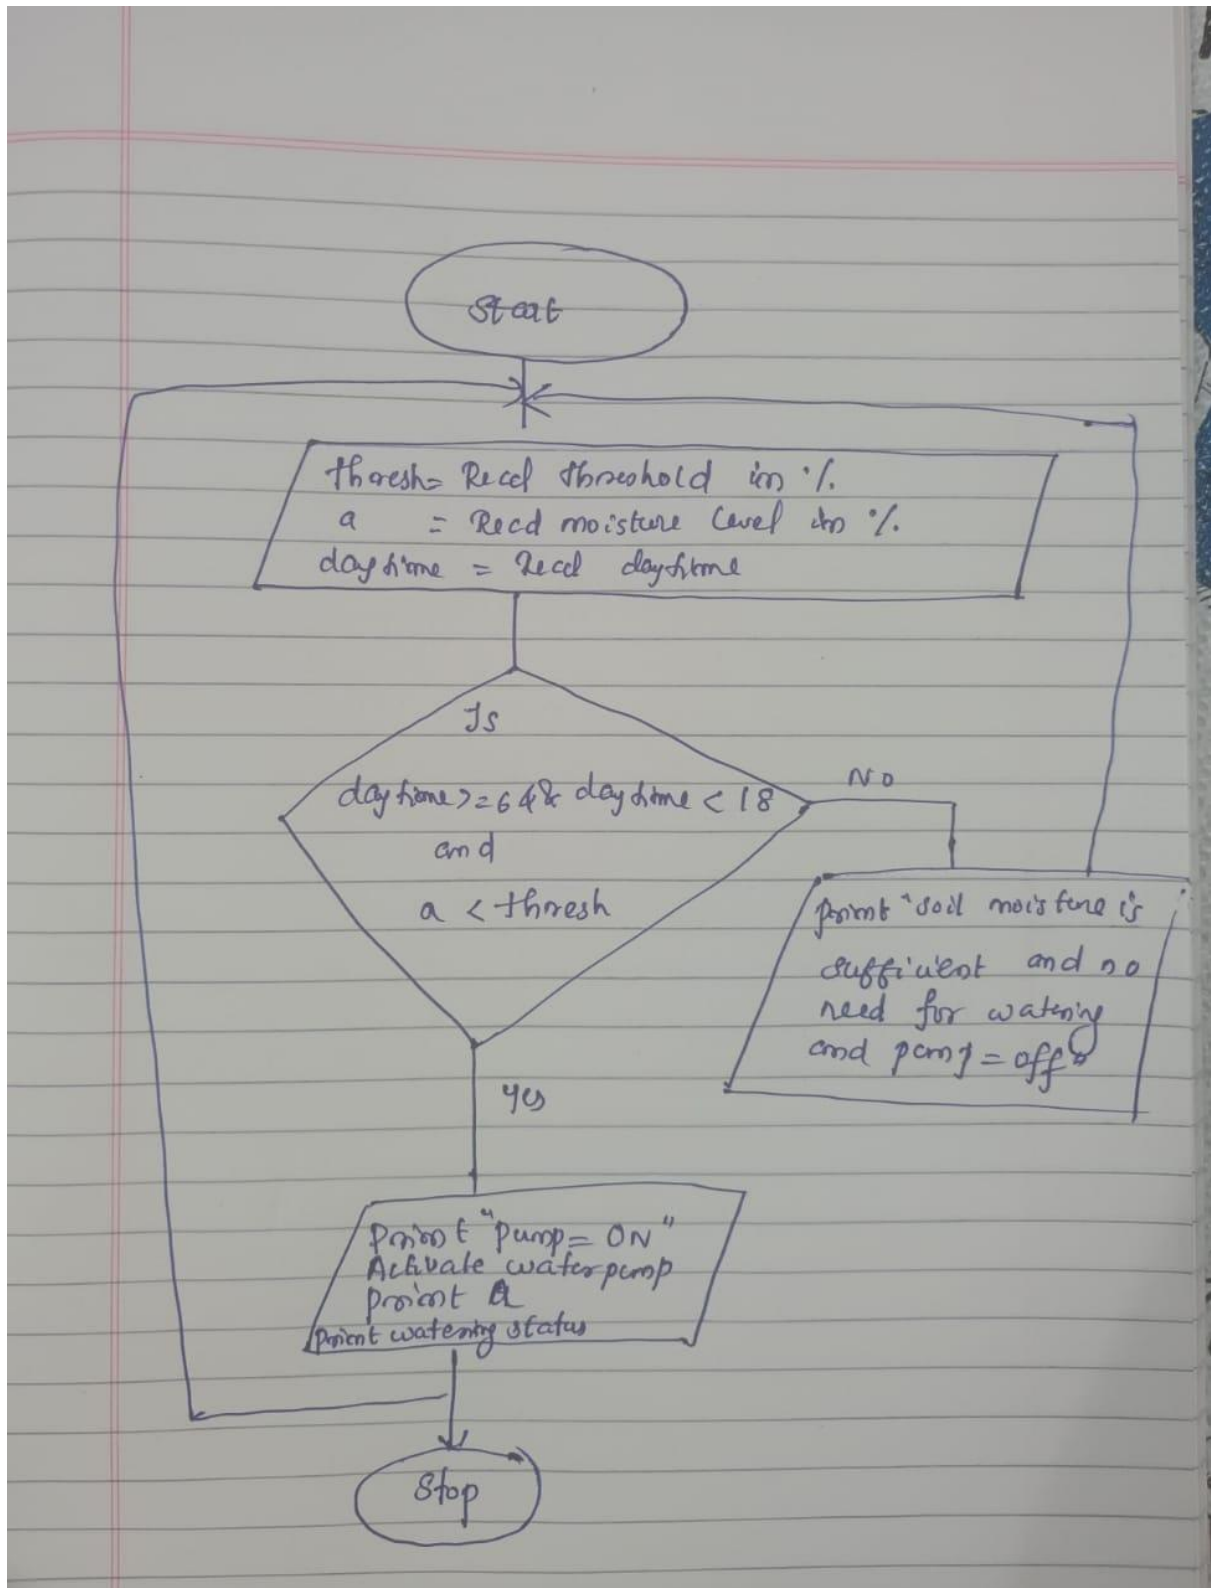 Start
thresh= Read threshold in %
a = Read moisture level in %
daytime = Read daytime
Is
daytime>=6 && daytime < 18
and
a < thresh
No
print "soil moisture is
sufficient and no
need for watering
and pump = off"
yes
print "pump= ON"
Activate water pump
print a
print watering status
Stop